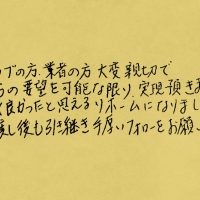 ブの方、業者の方 大変 親切で
らの要望を可能な限り、実現預き
良かったと思えるリホームになりまし
渡し後も引き継き手厚いフォローをお願い